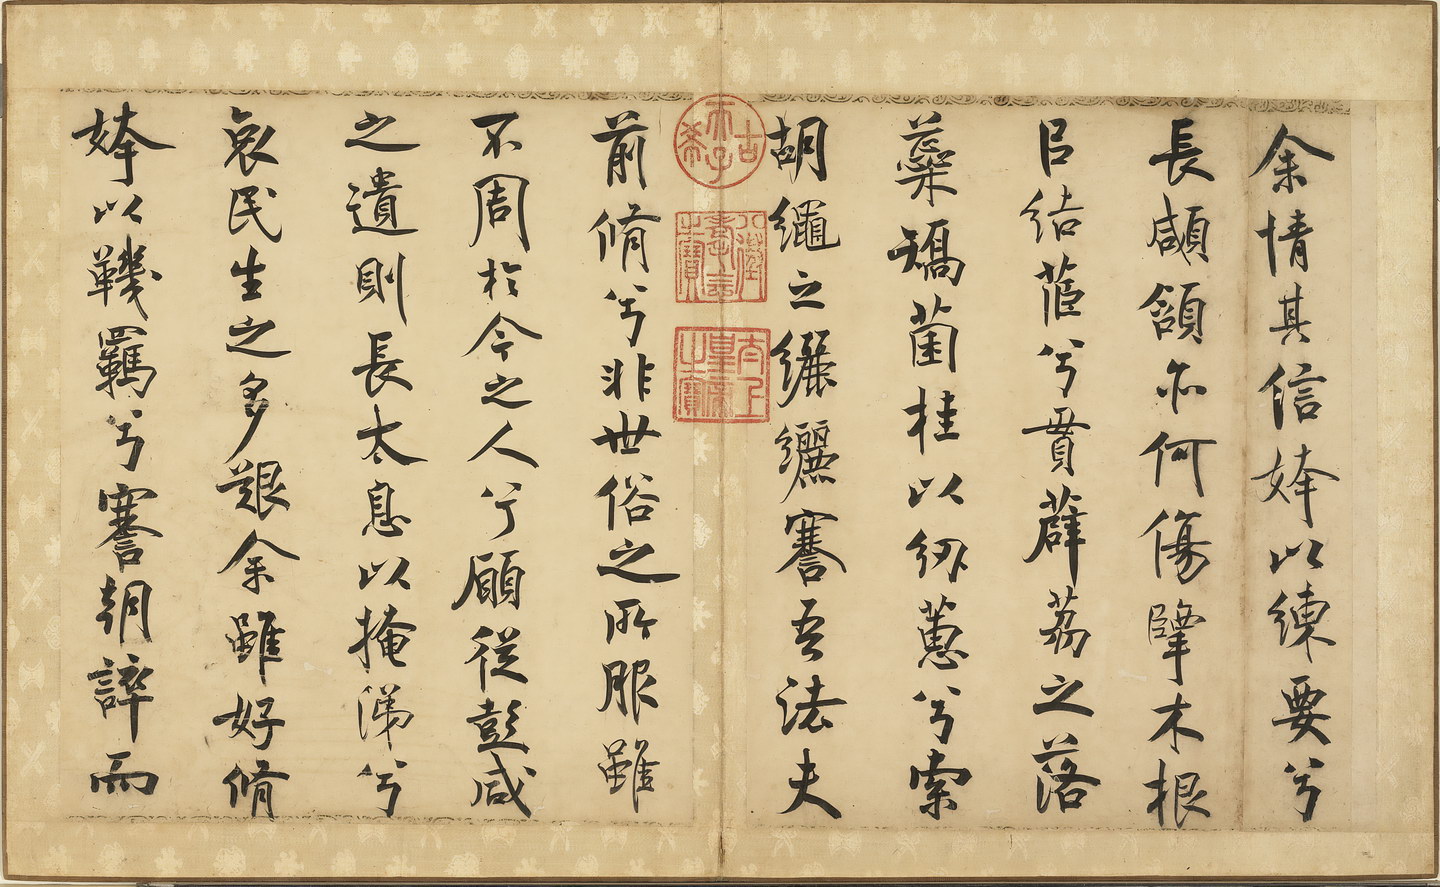 余情其信姱以練要兮
長顑頷亦何傷擥木根
㠯結茞兮貫薜荔之落
蘂矯菌桂以紉蕙兮索
胡繩之纚纚謇吾法夫
古希天子
八徵耄念之寶
太上皇帝之寶
前脩兮非世俗之所服雖
不周於今之人兮願從彭咸
之遺則長太息以掩涕兮
哀民生之多艱余雖好脩
姱以鞿羈兮謇朝誶而